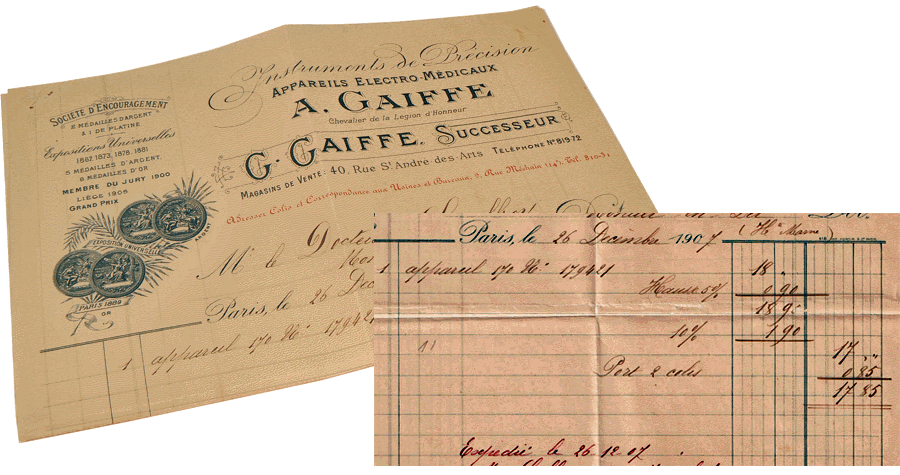 Instruments de Précision
APPAREILS ELECTRO-MÉDICAUX
A. GAIFFE
Chevalier de la Légion d'Honneur
G. GAIFFE, SUCCESSEUR
MAGASINS DE VENTE: 40, RUE ST ANDRÉ-DES-ARTS TELÉPHONE N° 819-72
Adresser Colis et Correspondance aux Usines et Bureaux, 9, Rue Méchain
SOCIÉTÉ D'ENCOURAGEMENT
2 MÉDAILLES D'ARGENT
& 1 DE PLATINE
Expositions Universelles
1867, 1873, 1878, 1881
5 MÉDAILLES D'ARGENT
6 MÉDAILLES D'OR
MEMBRE DU JURY 1900
LIÈGE 1905
GRAND PRIX
ARGENT
EXPOSITION UNIVERSELLE
PARIS 1889
OR
M le Docteu
Paris, le 26 Dec
1 appareil 170 No 179421
(Hte Marne)
Paris, le 26 Decembre 1907
1 appareil 170 No 179421 18 "
Hausse 5% 0 90
18 90
10% 1 90
17 "
Port 2 colis 0 85
17 85
Expedié le 26-12-07